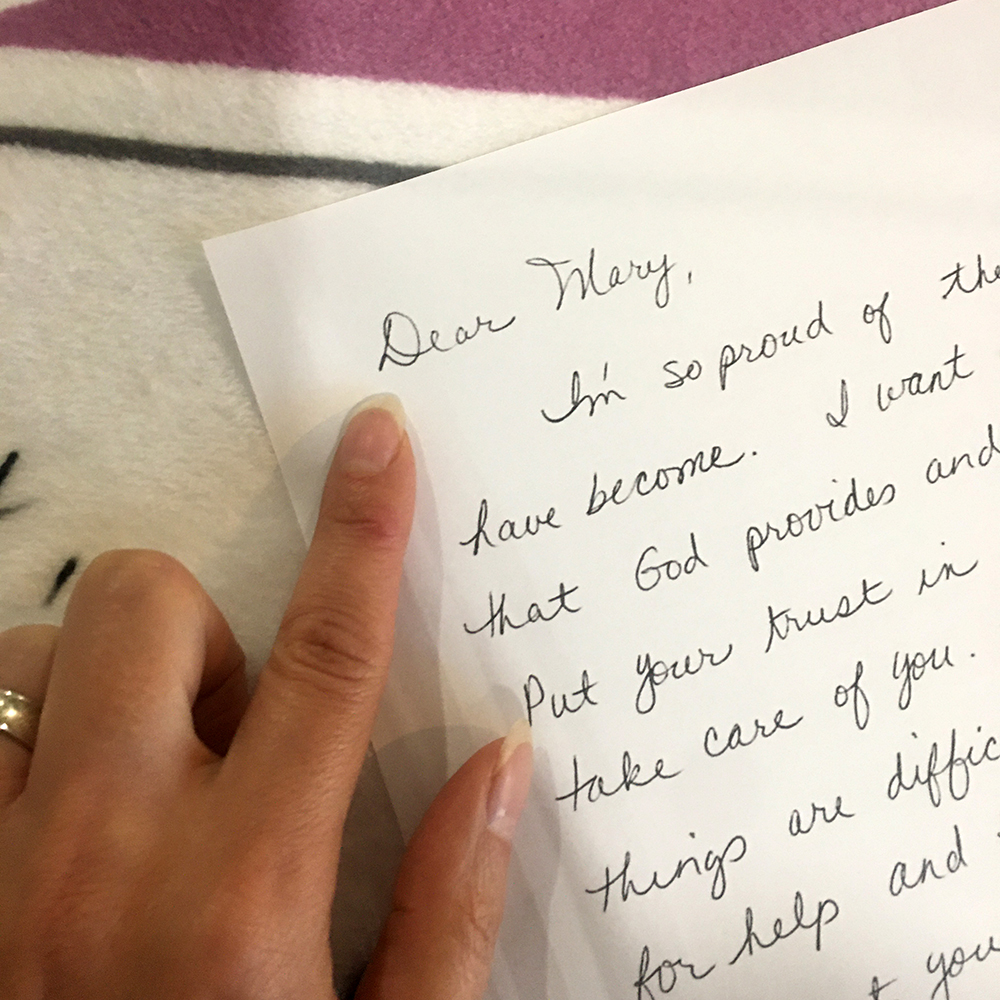 Dear Mary,
I'm so proud of the
have become. I want
that God provides and
Put your trust in
take care of you.
things are diffic
for help and
you